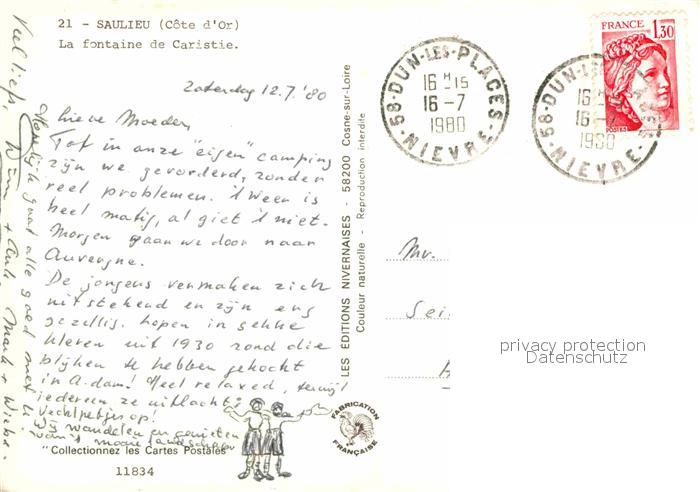 21 - SAULIEU (Côte d'Or)
La fontaine de Caristie.
Zaterdag 12.7.'80
Lieve Moeder,
Tot in onze "eigen" camping
zijn we gevorderd, zonder
veel problemen. 't Weer is
heel matig, al giet 't niet.
Morgen gaan we door naar
Auvergne.
De jongens vermaken zich
uitstekend en zijn erg
gezellig. Lopen in gekke
kleren uit 1930 rond die
blijken te hebben gekocht
in A.dam! Heel relaxed, terwijl
iedereen ze uitlacht!
Vechtpetjes op!
Wij wandelen en genieten
van 't mooie landschap
Hopelijk gaat alles goed met U
Veel liefs, Wim + Mark + Wiebe.
"Collectionnez les Cartes Postales"
11834
LES EDITIONS NIVERNAISES - 58200 Cosne-sur-Loire
Couleur naturelle - Reproduction interdite
FABRICATION
FRANÇAISE
58-DUN-LES-PLACES
16 H 15
16-7
1980
NIEVRE
58-DUN-LES
16
16-7
1980
NIEVRE
FRANCE
1,30
POSTES
Mv.
Sei
privacy protection
Datenschutz